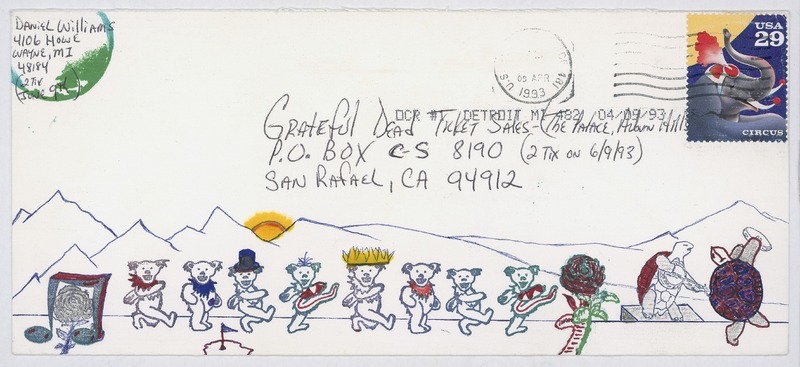 DANIEL WILLIAMS
4106 HOWE
WAYNE, MI
48184
(2 TIX
JUNE 9TH)
05 APR
1993
USA
29
CIRCUS
DCR #1 DETROIT MI 482 04/09/93
GRATEFUL DEAD TICKET SALES-(THE PALACE, AUBURN HILLS
P.O. BOX C-S 8190 (2 TIX ON 6/9/93)
SAN RAFAEL, CA 94912